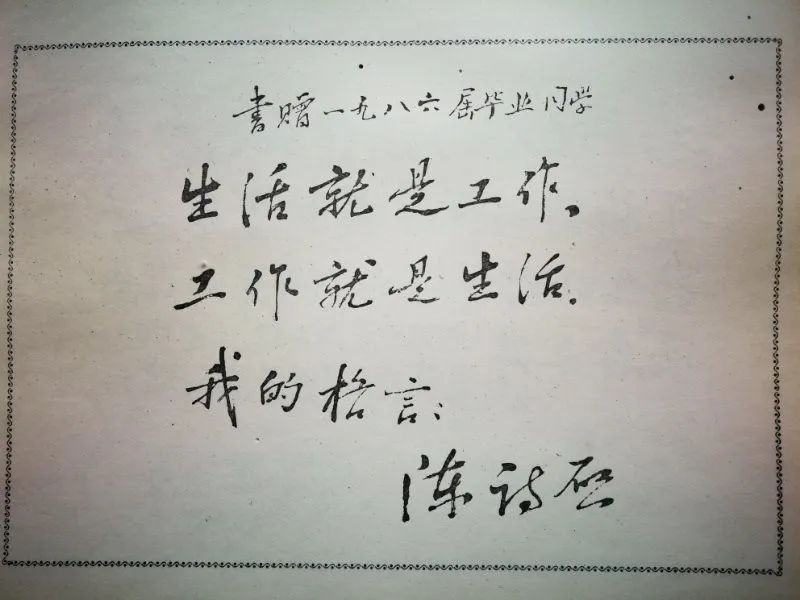 書赠一九八六届毕业同学
生活就是工作。
工作就是生活.
我的格言：
陈诗启